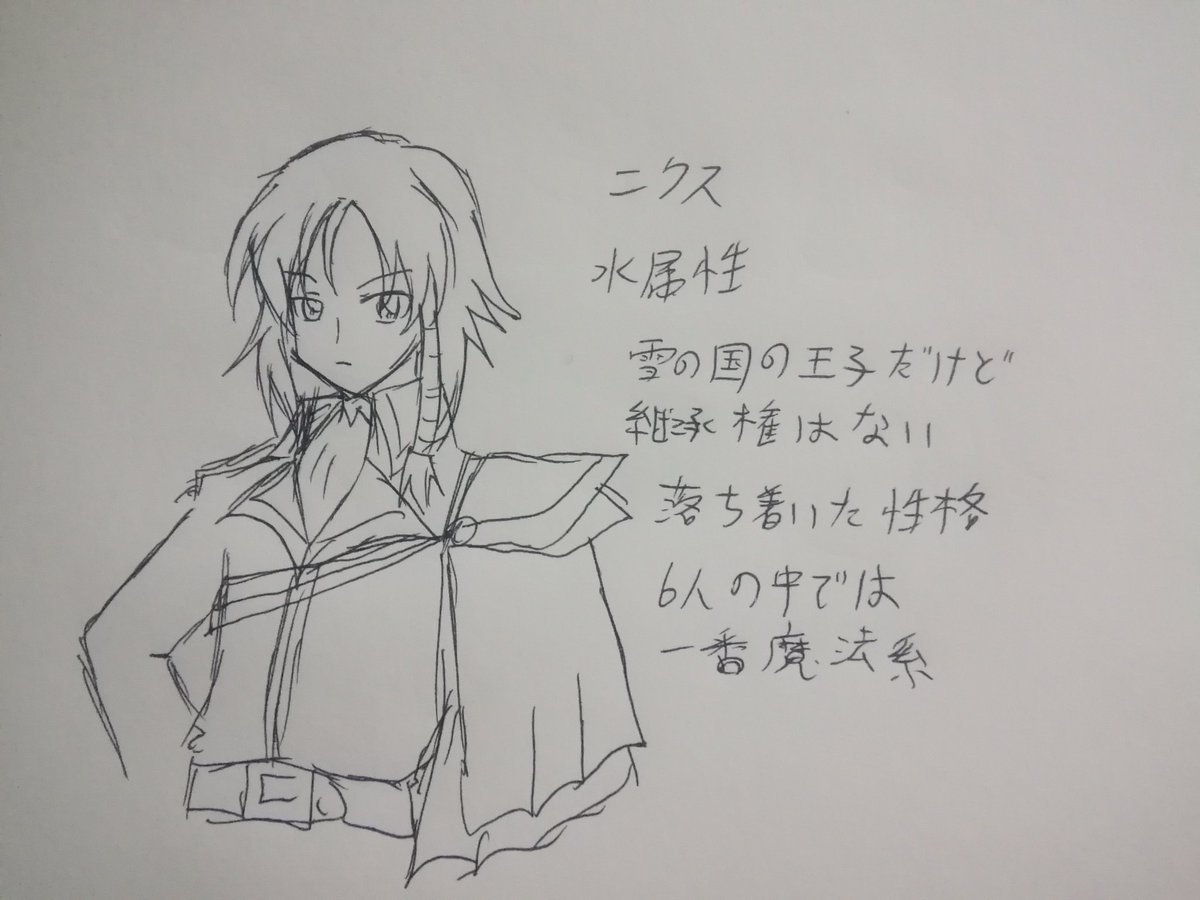 ニクス
水属性
雪の国の王子だけど
継承権はない
落ち着いた性格
6人の中では
一番魔法系